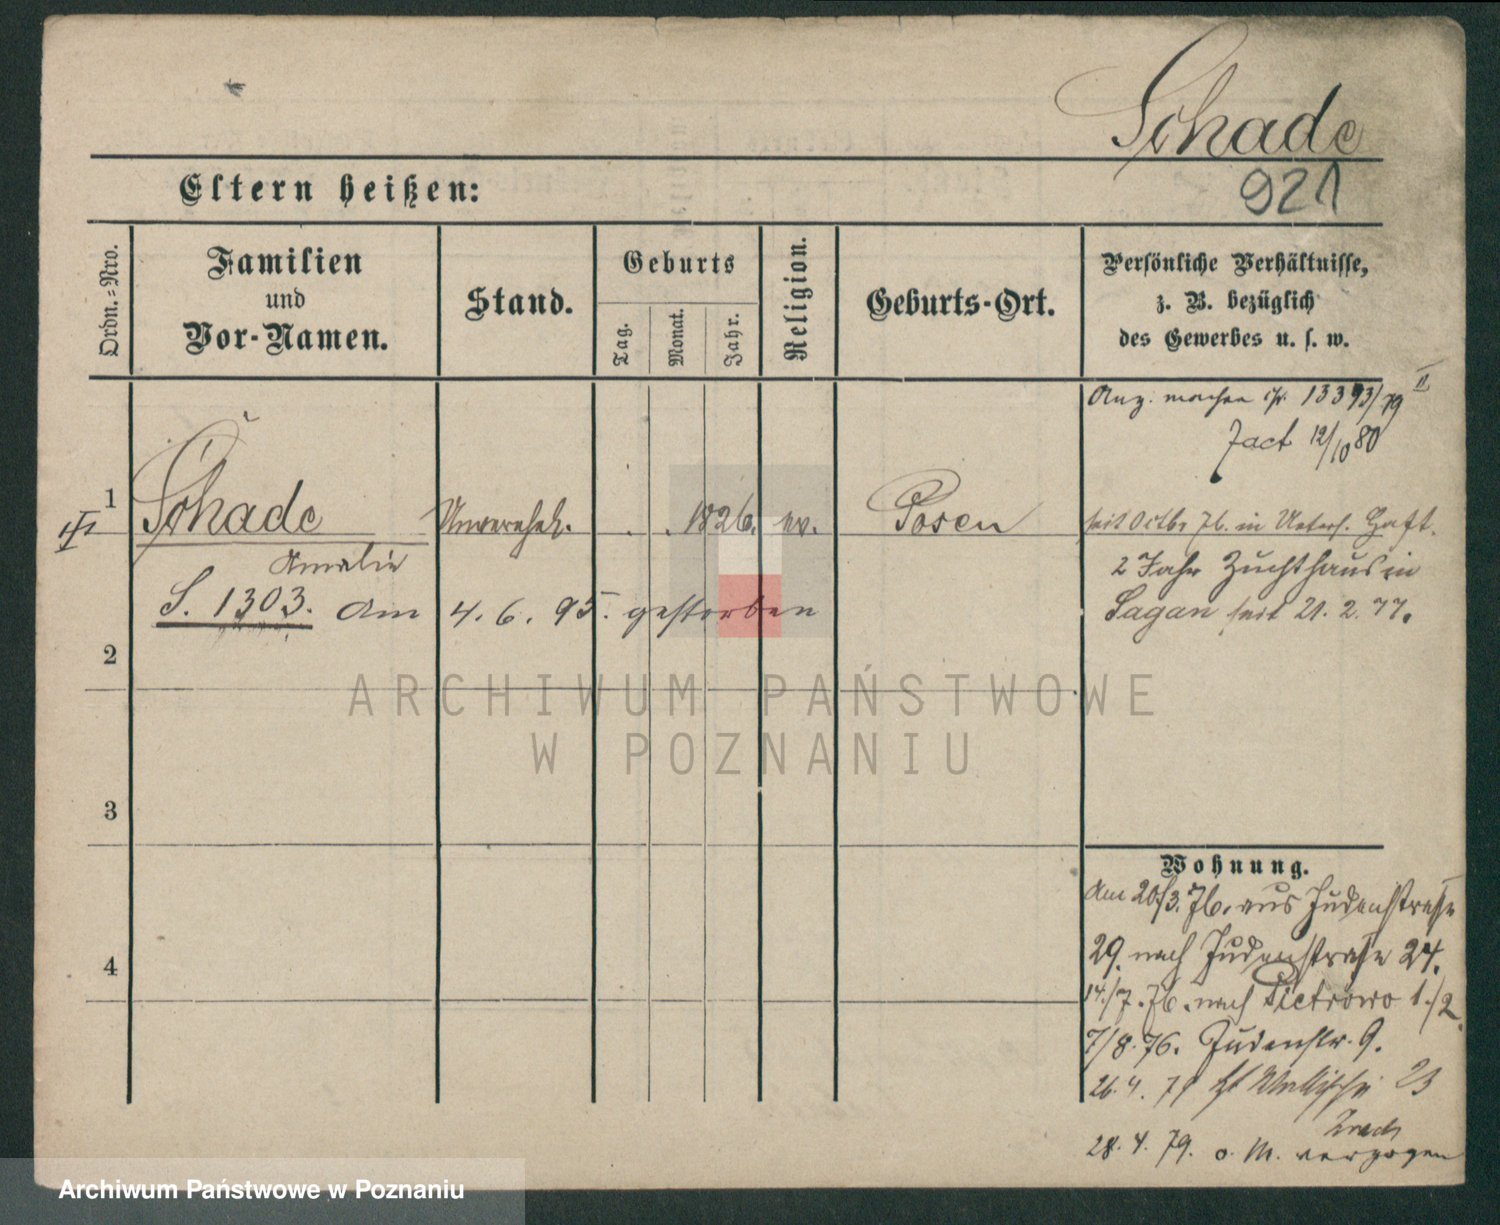 Schade
Eltern heißen:
921
Ordn.=Nro.
Familien
und
Vor-Namen.
Stand.
Geburts
Tag.
Monat.
Jahr.
Religion.
Geburts-Ort.
Persönliche Verhältnisse,
z. B. bezüglich
des Gewerbes u. s. w.
13393/79 II
12/10 80
1
Schade
Unverehel.
. . 1826. ev.
Posen
seit Octbr 76. in Unters. Haft.
Amalie
2 Jahr Zuchthaus in
S. 1303. am 4. 6. 95. gestorben
Sagan seit 21. 2. 77.
2
ARCHIWUM PAŃSTWOWE
W POZNANIU
3
Wohnung.
Am 20/3. 76. aus Judenstraße
29. nach Judenstraße 24.
4
14./7. 76. nach Pietrowo 1./2.
7/8. 76. Judenstr. 9.
26. 4. 79 Wallischei 23
28. 4. 79. o. M. verzogen
Archiwum Państwowe w Poznaniu